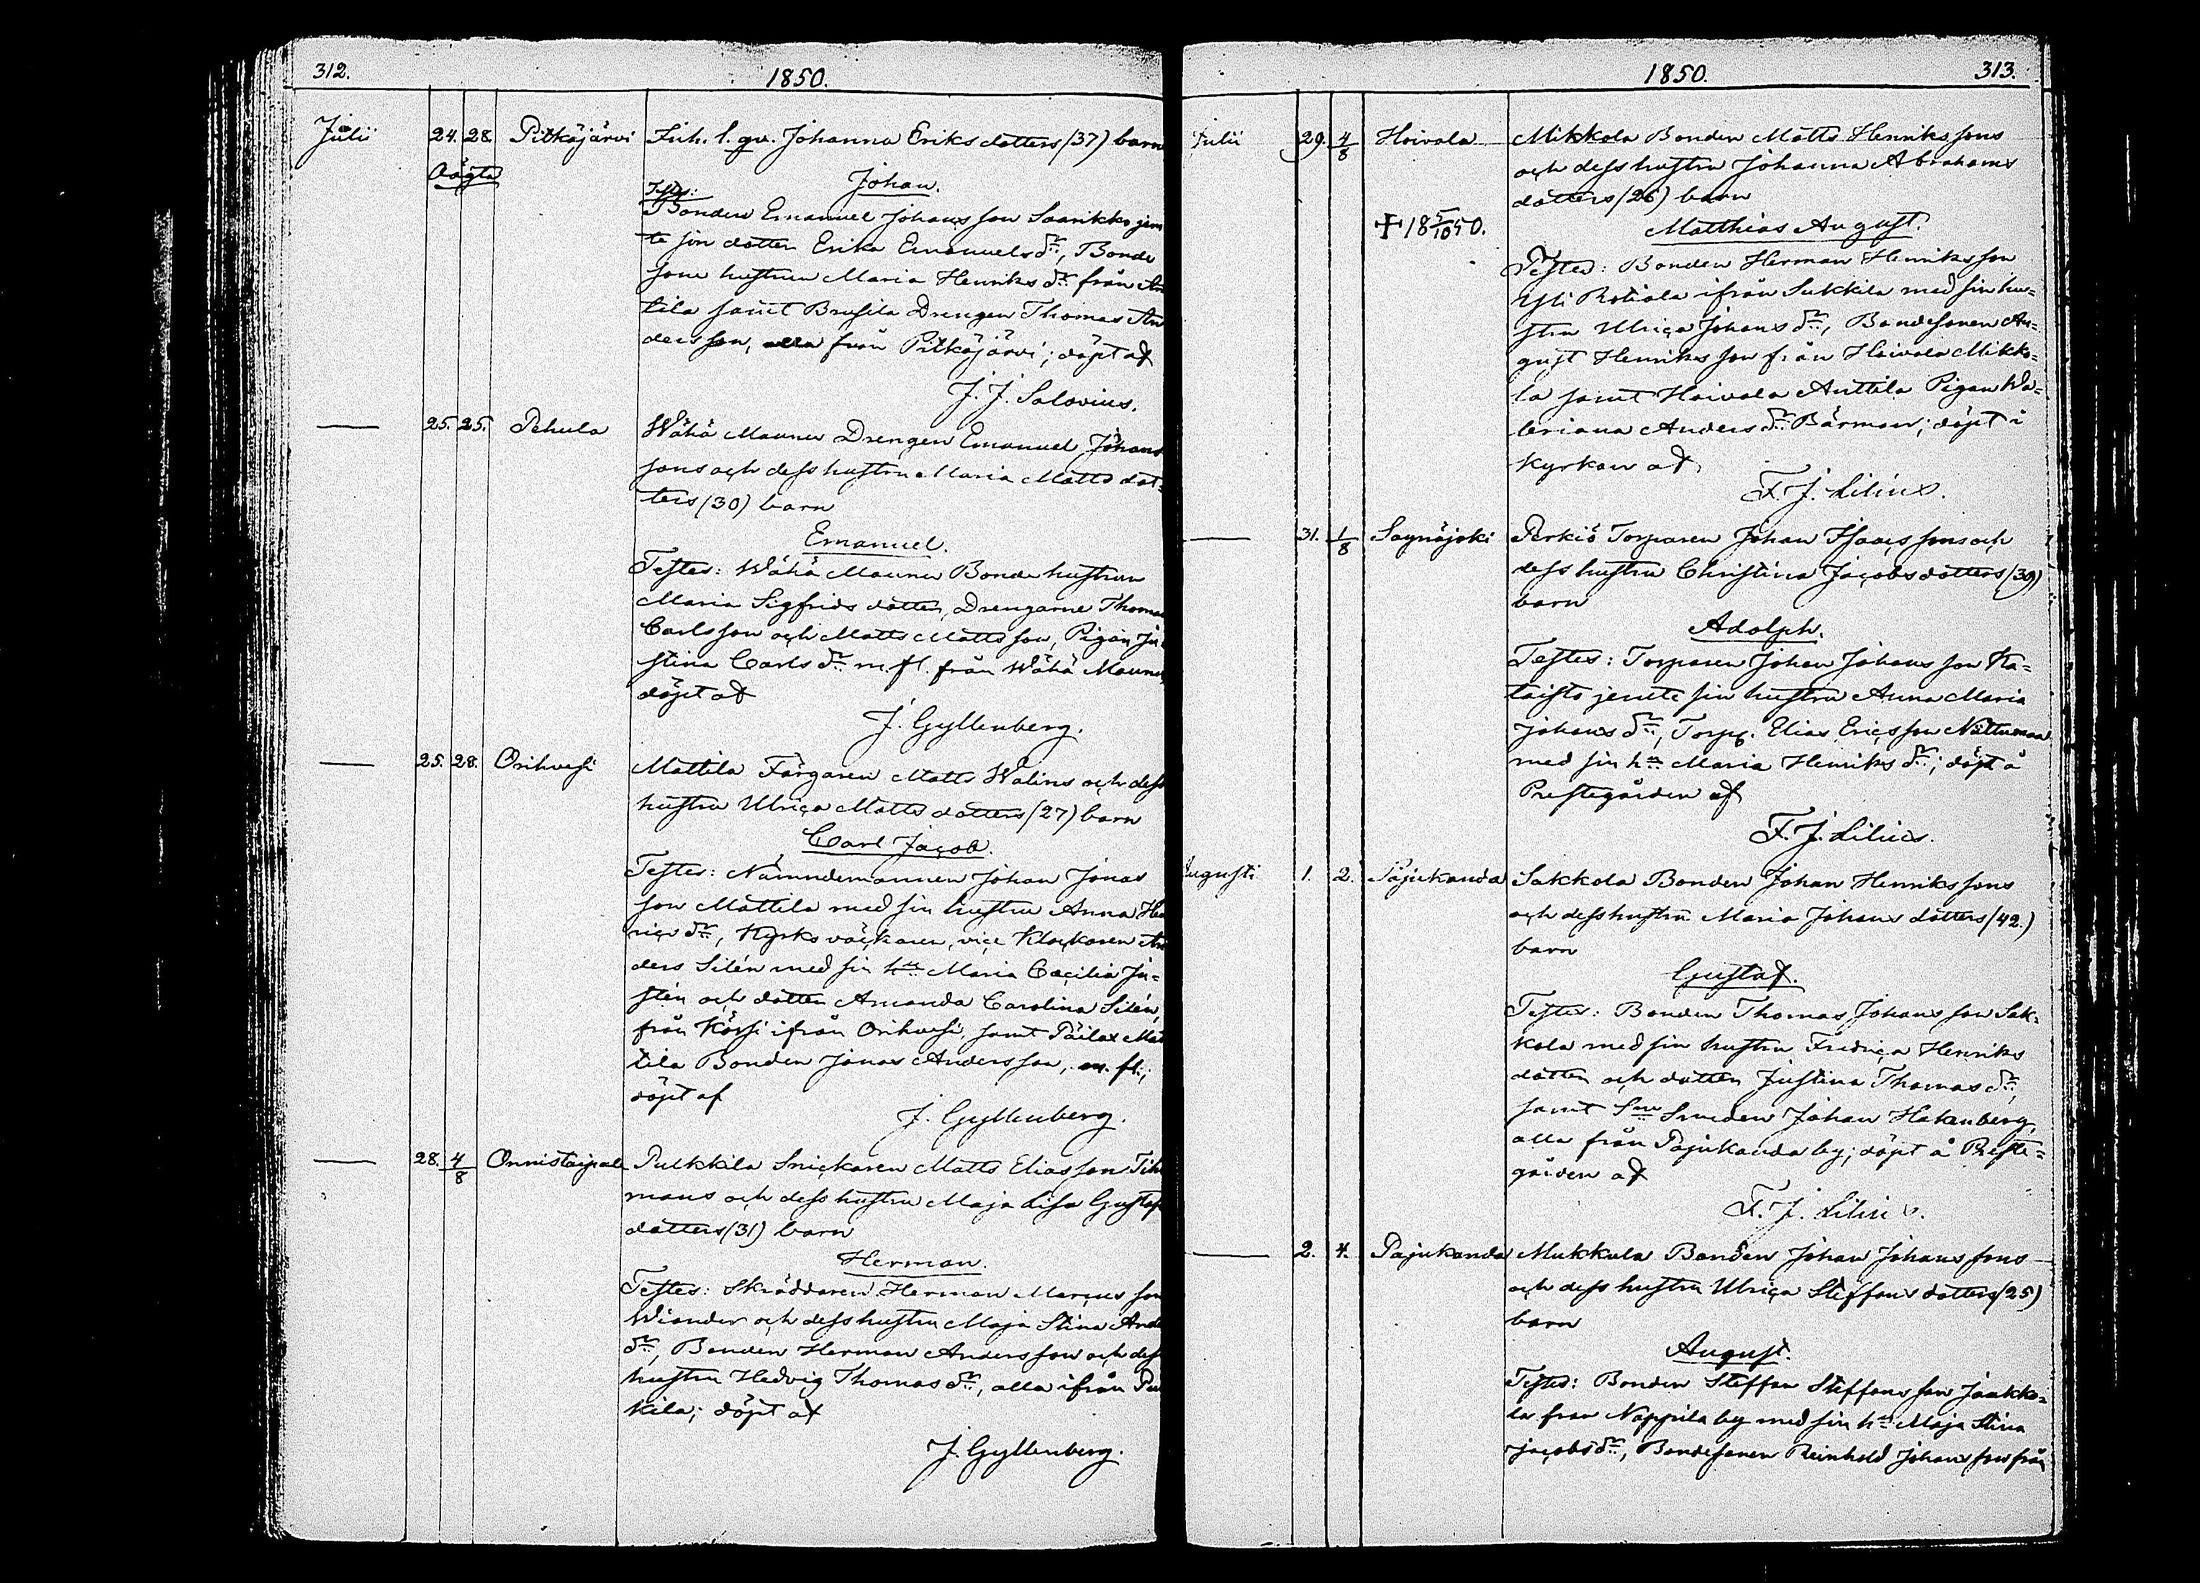 312.
1850.
Julii 24. 28. Pitkäjärvi Inh. l. qv. Johanna Eriks dotters (37) barn
Oägta
Johan.
Testes:
Bonden Emanuel Johans son Saarikko jem
te sin dotter Erika Emanuels dr, Bonde
sone hustrun Maria Henriks dr från An
tila samt Brusila Drengen Thomas An
ders son, alla från Pitkäjärvi; döpt af
J. J. Salovius.
25. 25. Pehula Wähä Maunu Drengen Emanuel Johans
sons och dess hustru Maria Matts dot=
ters (30) barn
Emanuel.
Testes: Wähä Maunu Bonde hustrun
Maria Sigfrids dotter, Drengarne Thomas
Carls son och Matts Matts son, Pigan Ju
stina Carls dr m. fl. från Wähä Maunu,
döpt af
J. Gyllenberg.
25. 28. Orihvesi Mattila Färgaren Matts Walins och dess
hustru Ulrica Matts dotters (27) barn
Carl Jacob.
Testes: Nämndemannen Johan Jonas
son Mattila med sin hustru Anna Hen
rics dr, Kyrko väckaren, vice Klockaren An
ders Silén med sin hu Maria Cæcilia Ju=
stén och dotter Amanda Carolina Silén,
från Körsi ifrån Orihvesi, samt Päilax Mat
tila Bonden Jonas Anders son, m. fl.;
döpt af
J. Gyllenberg.
28. 4/8 Onnistaipale Pulkkila Snickaren Matts Elias son Tih
mans och dess hustru Maja Lisa Gustafs
dotters (31) barn
Herman.
Testes: Skräddaren Herman Marcus son
Wiander och dess hustru Maja Stina Anders
dr, Bonden Herman Anders son och dess
hustru Hedvig Thomas dr, alla ifrån Pu
kila; döpt af
J. Gyllenberg.
1850.
313.
Julii 29. 4/8 Hoivala Mikkola Bonden Matts Henriks sons
och dess hustru Johanna Abrahams
dotters (26) barn
+ 18 5/10 50.
Matthias August.
Testes: Bonden Herman Henriks son
Yli Rotiala ifrån Sukkila med sin hu=
stru Ulrica Johans dr, Bondesonen Au=
gust Henriks son från Hoivala Mikko=
la samt Hoivala Anttila Pigan Wa=
leriana Anders dr Bärman; döpt i
kyrkan af
F. J. Lilius.
31. 1/8 Saynäjoki Perkiö Torparen Johan Isaacs sons och
dess hustru Christina Jacobs dotters (39)
barn
Adolph.
Testes: Torparen Johan Johans son Ka=
taisto jemte sin hustru Anna Maria
Johans dr, Torp. Elias Erics son Nättumaa
med sin hu Maria Henriks dr; döpt å
Prestegården af
F. J. Lilius.
Augusti 1. 2. Pajukanda Sakkola Bonden Johan Henriks sons
och dess hustru Maria Johans dotters (42.)
barn
Gustaf.
Testes: Bonden Thomas Johans son Sak=
kola med sin hustru Fredrica Henriks
dotter och dotter Justina Thomas dr,
samt Smeden Johan Hakenberg,
alla från Pajukanda by; döpt å Preste=
gården af
F. J. Lilius.
2. 4. Pajukanda Mukkula Bonden Johan Johans sons
och dess hustru Ulrica Steffans dotters (25)
barn
August.
Testes: Bonden Steffan Steffans son Jaakko=
la från Nappila by med sin hu Maja Stina
Jacobs dr, Bondesonen Reinhold Johans son från